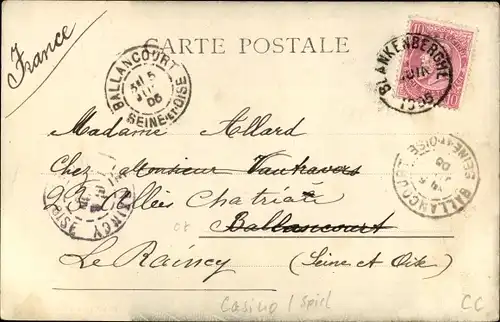 France
CARTE POSTALE
BALLANCOURT
SEINE-ET-OISE
05
BLANKENBERGHE
JUIN
1905
10 10
Madame Allard
Chez Monsieur Vautravers
23 Allées Chatriate
Ballancourt
Le Raincy (Seine et Oise)
BALLANCOURT
SEINE-ET-OISE
05
Casino / Spiel
CC